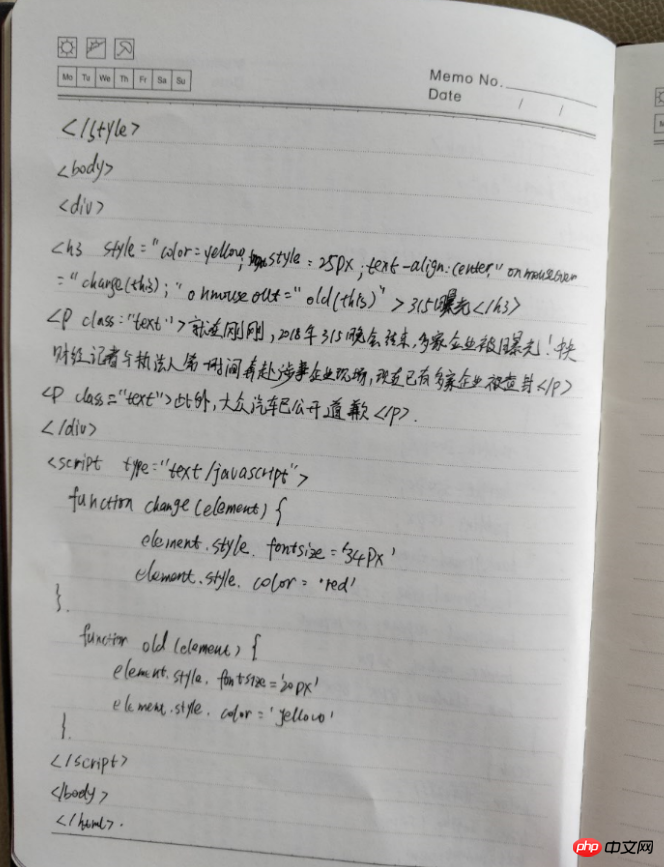 Mo Tu We Th Fr Sa Su
Memo No.
Date / /
</style>
<body>
<div>
<h3 style="color=yellow; style:25px; text-align:center;" onmouseover
="change(this);" onmouseout="old(this)">315曝光</h3>
<p class="text">就在刚刚,2018年315晚会结束,多家企业被曝光!央
财经记者与执法人第一时间奔赴涉事企业现场,现在已有多家企业被查封</p>
<p class="text">此外,大众汽车已公开道歉</p>.
</div>
<script type="text/javascript">
function change(element) {
element.style.fontsize='34px'
element.style.color='red'
}.
function old(element) {
element.style.fontsize='20px'
element.style.color='yellow'
}.
</script>
</body>
</html>.
php 中文网